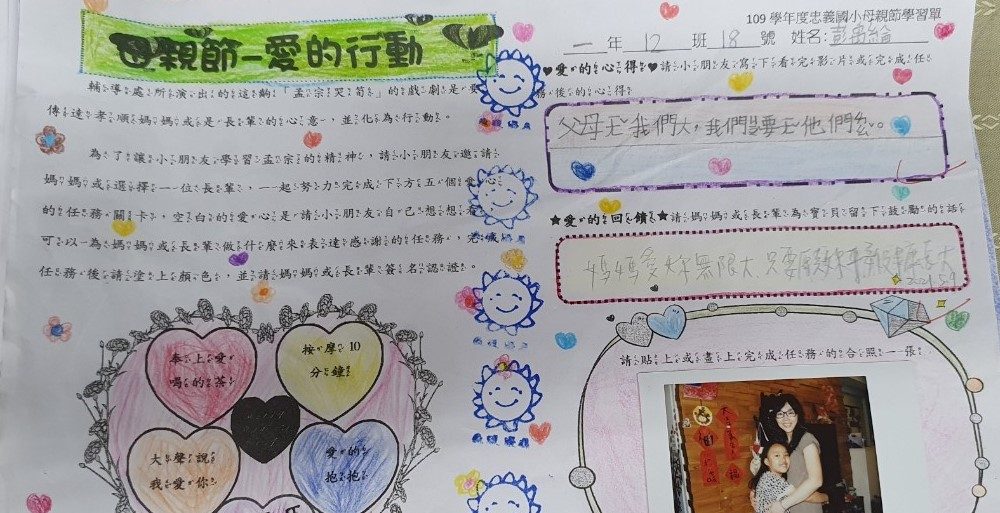 109 學年度忠義國小母親節學習單
母親節－愛的行動
一年 12 班 18 號 姓名:
輔導處所演出的這齣「孟宗哭筍」的戲劇是
傳達孝順媽媽或是長輩的心意，並化為行動。
為了讓小朋友學習孟宗的精神，請小朋友邀請
媽媽或選擇一位長輩，一起努力完成下方五個愛心
的任務關卡，空白的愛心是請小朋友自己想想看
可以為媽媽或長輩做什麼來表達感謝的任務，完成
任務後請塗上顏色，並請媽媽或長輩簽名認證。
奉上愛
喝的茶
按摩 10
分鐘
大聲說
我愛你
愛的
抱抱
♥愛的心得♥請小朋友寫下看完影片或完成任
務後的心得
父母王我們大，我們要王他們
★愛的回饋★請媽媽或長輩為寶貝留下鼓勵的話
媽媽愛妳無限大，只要
2021.5.9
請貼上或畫上完成任務的合照一張